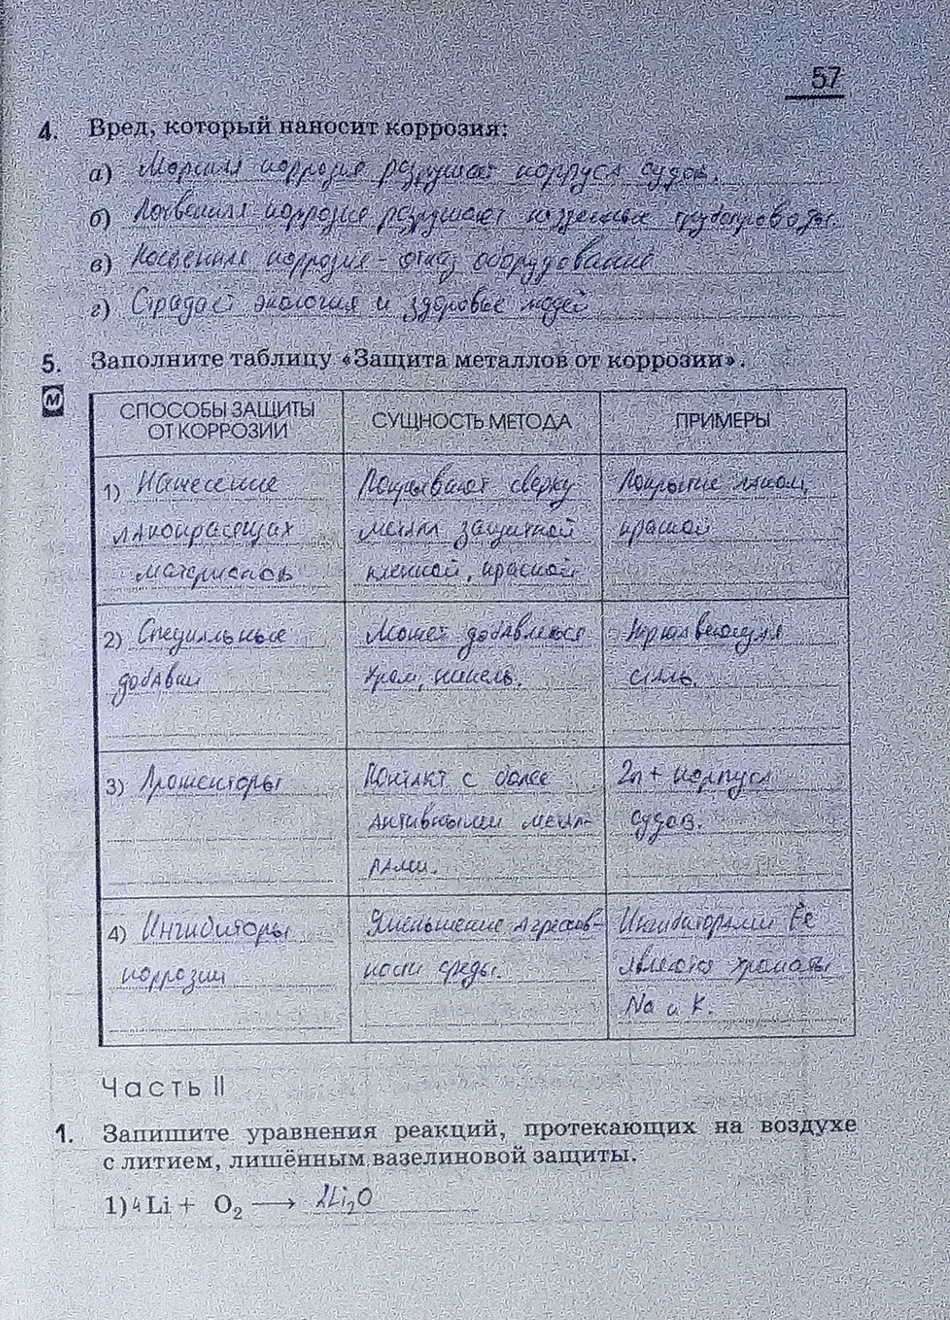 57
4. Вред, который наносит коррозия:
а) Морская коррозия разрушает корпуса судов.
б) Почвенная коррозия разрушают подземные трубопроводы.
в) Косвенная коррозия - отказ оборудования
г) Страдает экология и здоровье людей
5. Заполните таблицу «Защита металлов от коррозии».
М
СПОСОБЫ ЗАЩИТЫ ОТ КОРРОЗИИ
СУЩНОСТЬ МЕТОДА
ПРИМЕРЫ
1) Нанесение
лакокрасящих
материалов
Покрывают сверху
металл защитной
пленкой, краской
Покрытие лаком,
краской
2) Специальные
добавки
Может добавляться
хром, никель.
Нержавеющая
сталь.
3) Протекторы
Контакт с более
активными метал-
лами.
Zn + корпуса
судов.
4) Ингибиторы
коррозии
Уменьшение агрессив-
ности среды.
Ингибиторами Fe
являются хроматы
Na и K.
Часть II
1. Запишите уравнения реакций, протекающих на воздухе
с литием, лишённым вазелиновой защиты.
1) 4Li + O₂ ⟶ 2Li₂O